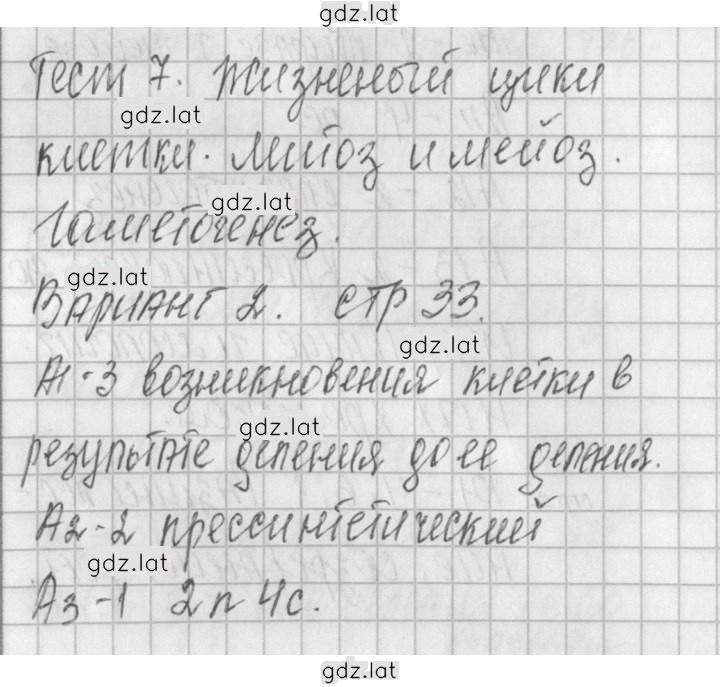 gdz.lat
Тест 7. Жизненый цикл
gdz.lat
клетки. Митоз и мейоз.
gdz.lat
Гаметогенез.
gdz.lat
Вариант 2. стр 33.
gdz.lat
А1-3 возникновения клетки в
gdz.lat
результате деления до ее деления.
А2-2 прессинтетический
gdz.lat
А3-1 2n 4c.
gdz.lat